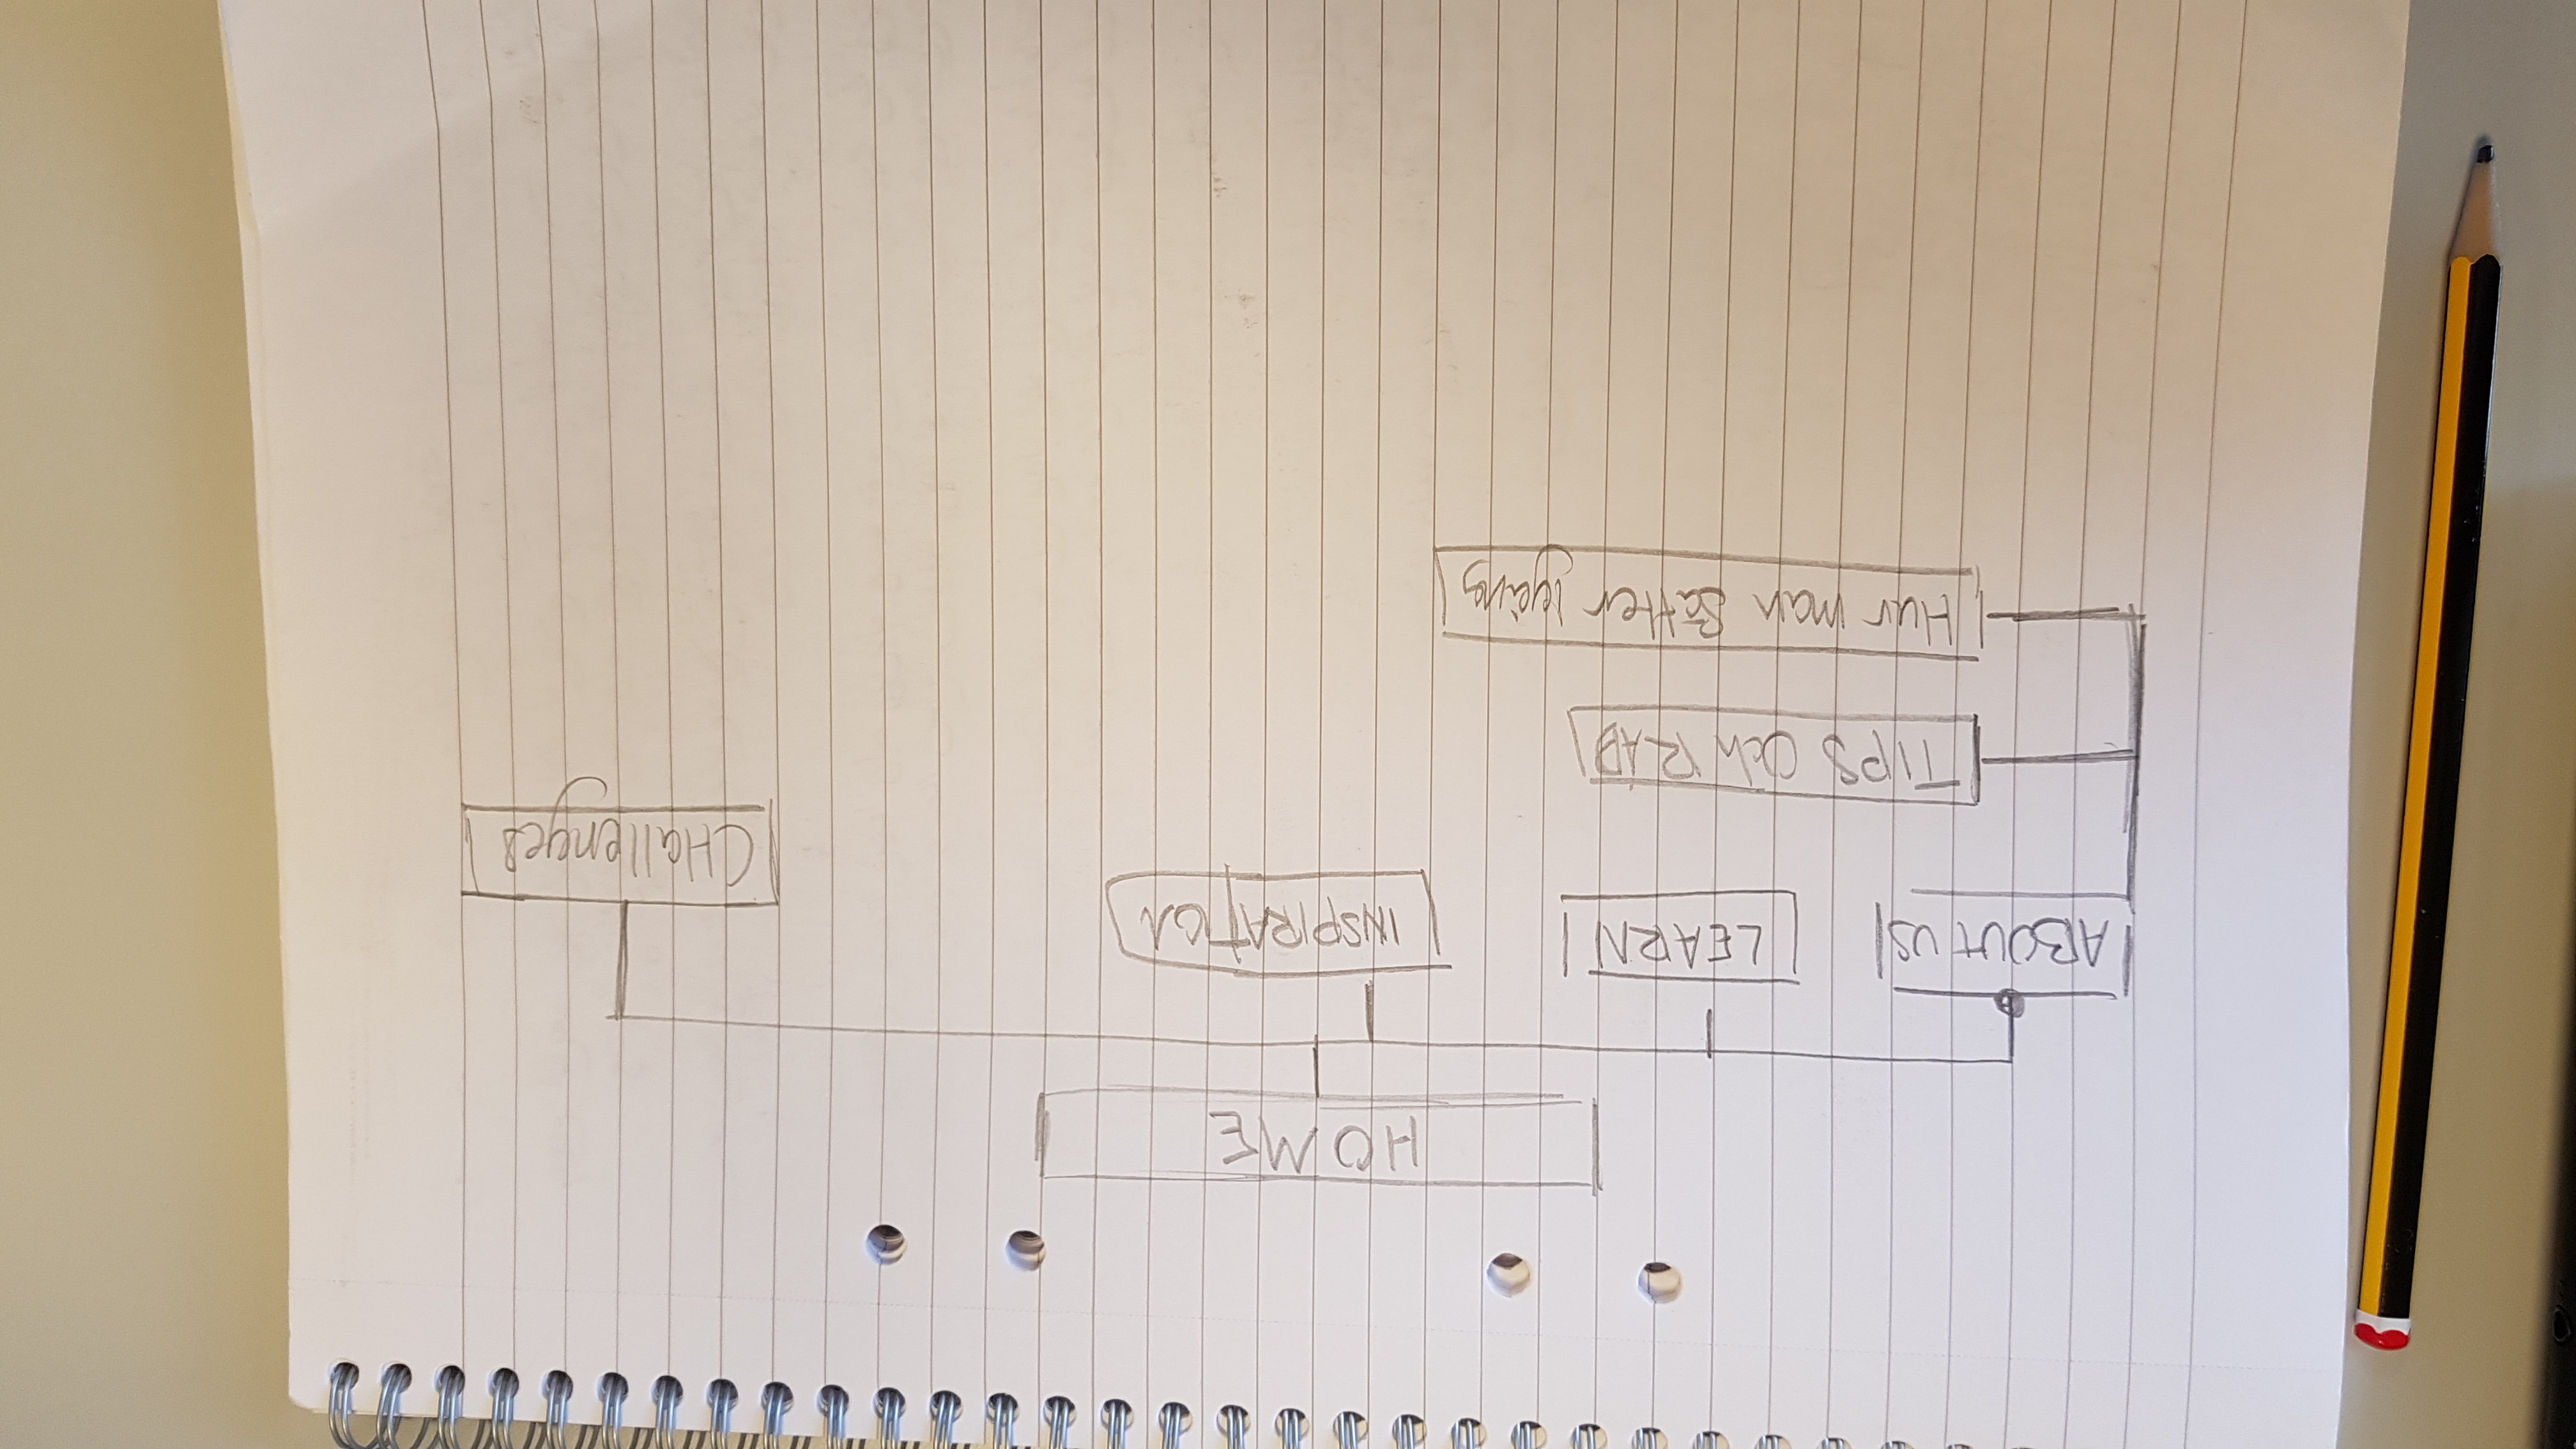 HOME
ABOUT US
LEARN
INSPIRATION
CHallenges
TIPS Och RÅD
Hur man Sätter igång